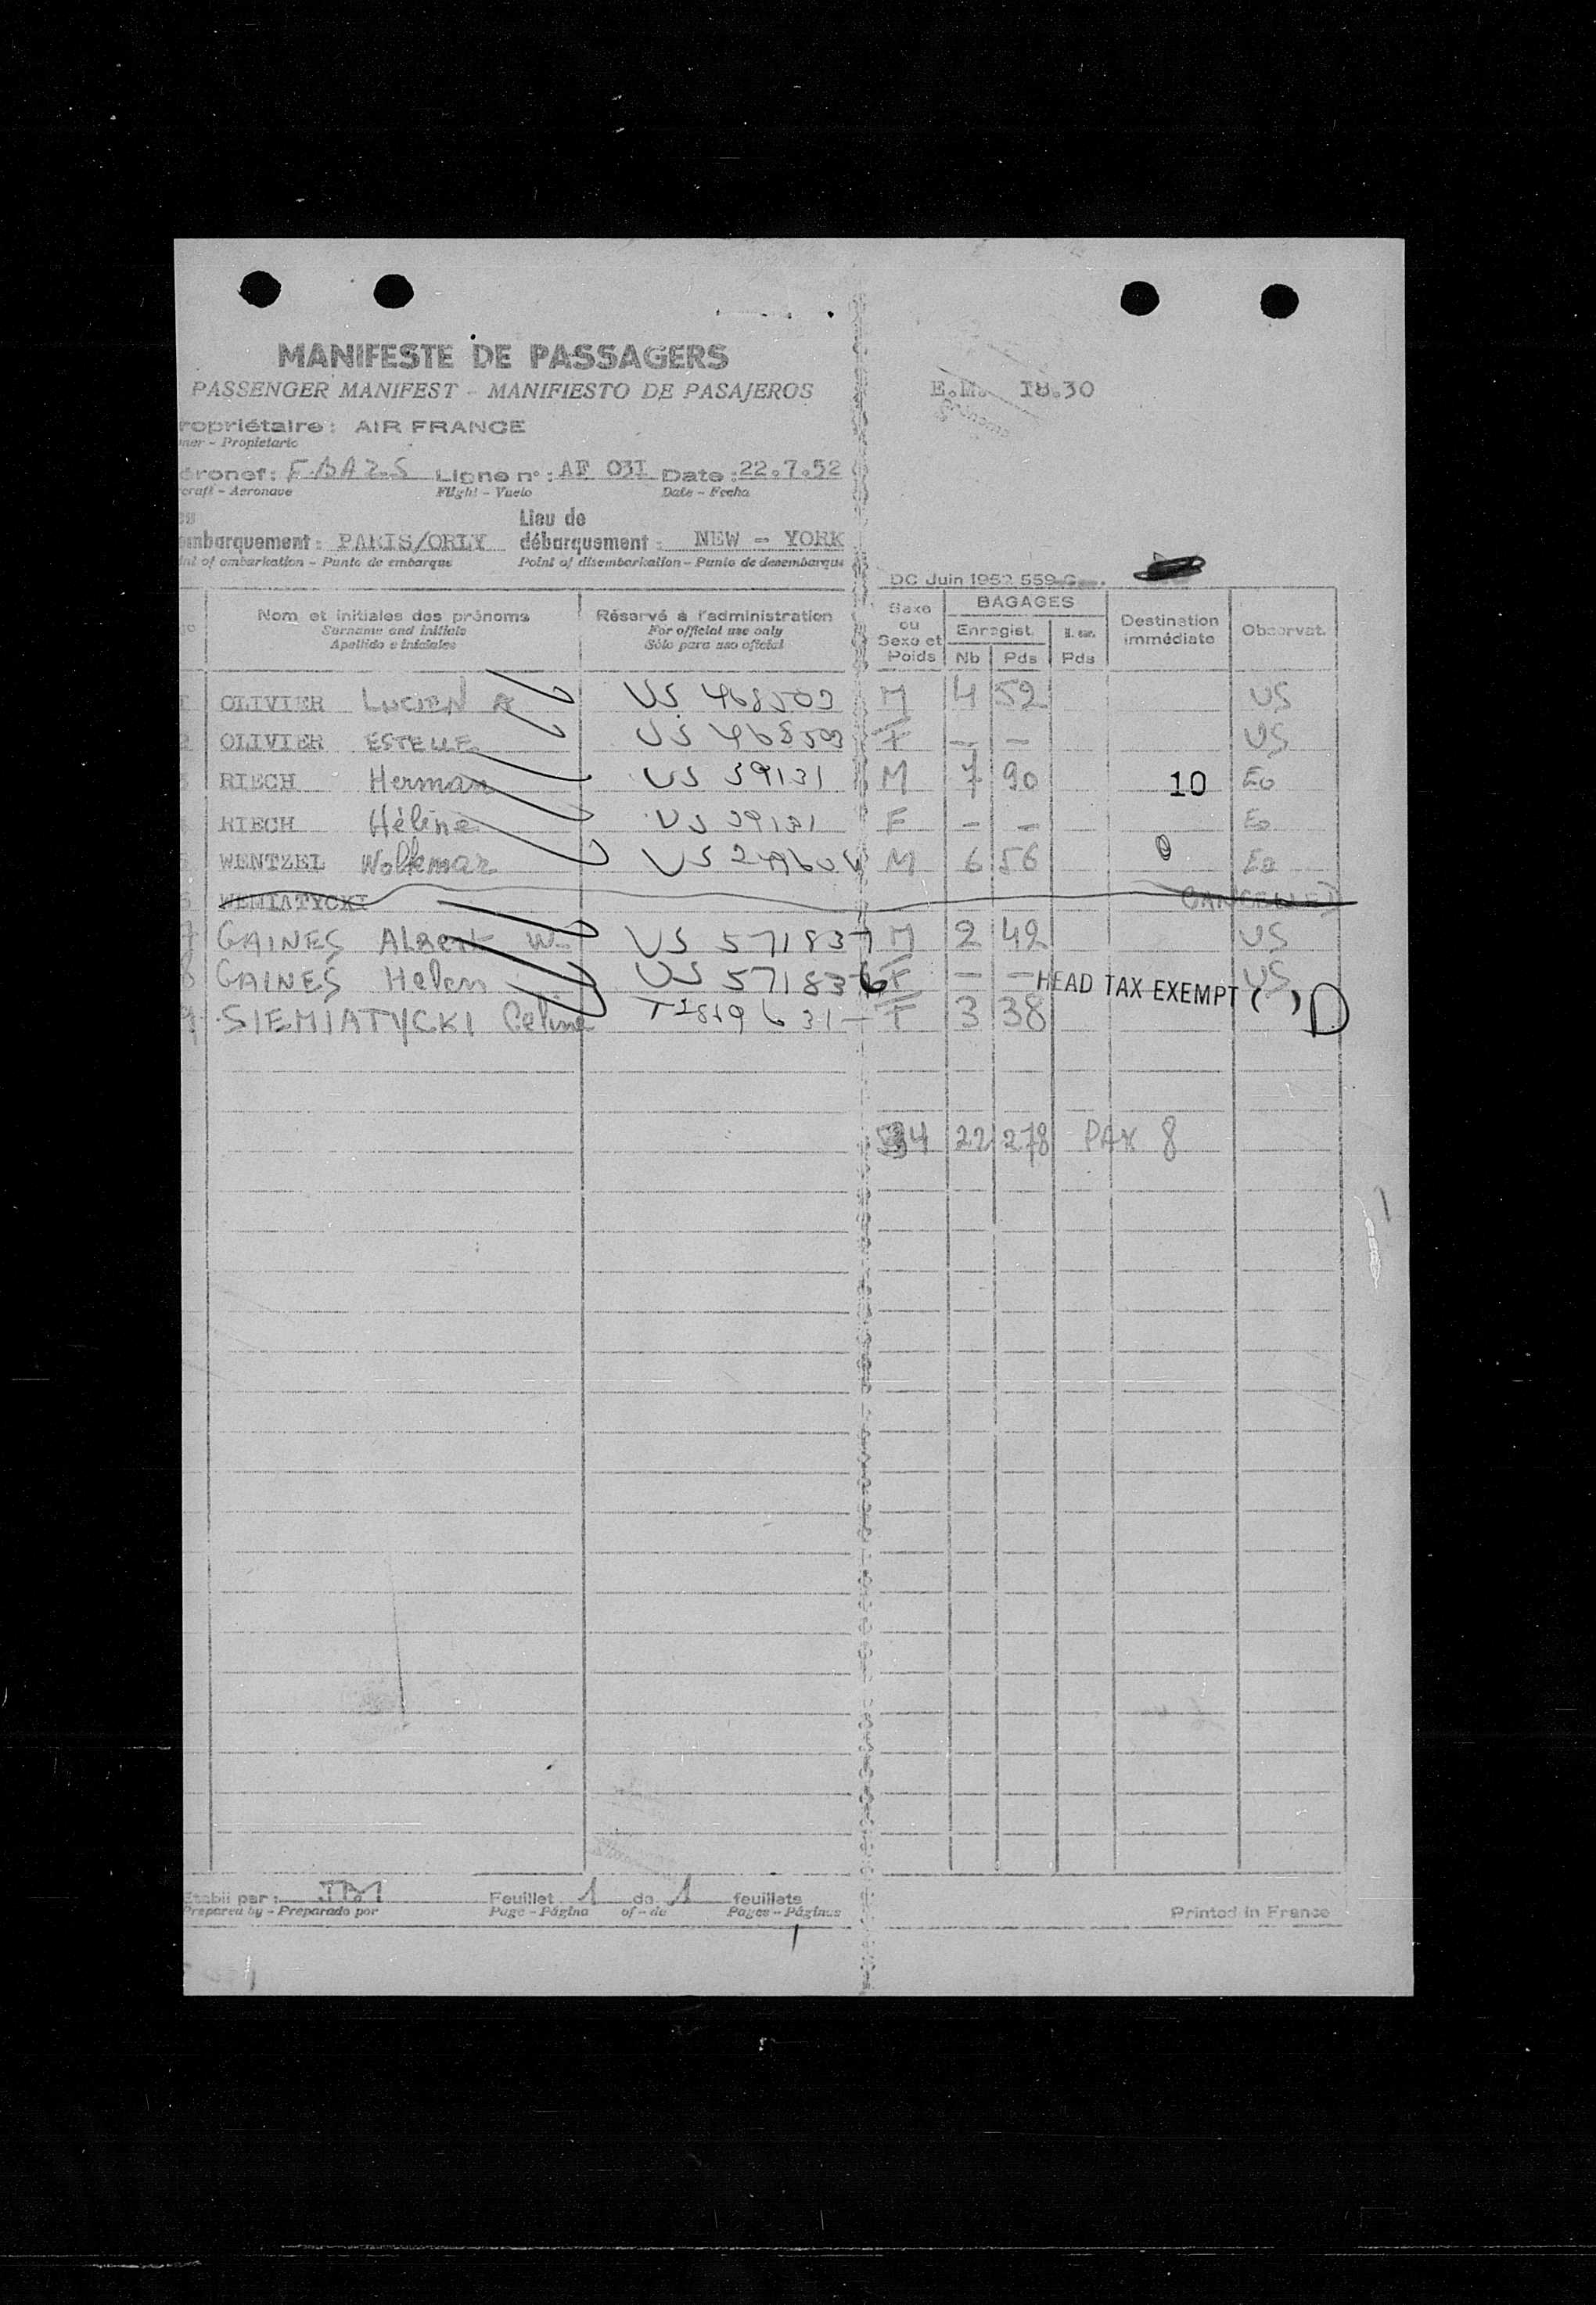 MANIFESTE DE PASSAGERS
PASSENGER MANIFEST - MANIFIESTO DE PASAJEROS
E.M. 18.30
ropriétaire : AIR FRANCE
ner - Propietario
éronef : F.BAZS Ligne n° : AF 031 Date : 22.7.52
craft - Aeronave Flight - Vuelo Date - Fecha
Lieu de
embarquement : PARIS/ORLY débarquement : NEW - YORK
int of embarkation - Punto de embarque Point of disembarkation - Punto de desembarque
DC Juin 1952 559
Nom et initiales des prénoms Réservé à l'administration Sexe ou Sexe et Poids BAGAGES Destination immédiate Observat.
Surname and initials For official use only Enregist.
Apellido e iniciales Sólo para uso oficial Nb Pds Pds
1 OLIVIER LUCIEN A US 468503 M 4 52 US
2 OLIVIER ESTELLE US 468503 F - - US
3 RIECH Herman US 39131 M 7 90 10 Eo
RIECH Héline US 39131 F - - Eo
5 WENTZEL Wolkmar US M 6 56 Eo
6 WEMIATYCKI CANCELLED
7 GAINES Albert W. US 571837 M 2 42 US
8 GAINES Helen US 571836 F - - US
HEAD TAX EXEMPT ( ) D
9 SIEMIATYCKI Celine F 3 38
34 22 278 PAX 8
Etabli par : JM Feuillet 1 de 1 feuillets
Prepared by - Preparado por Page - Página of - de Pages - Páginas
Printed in France